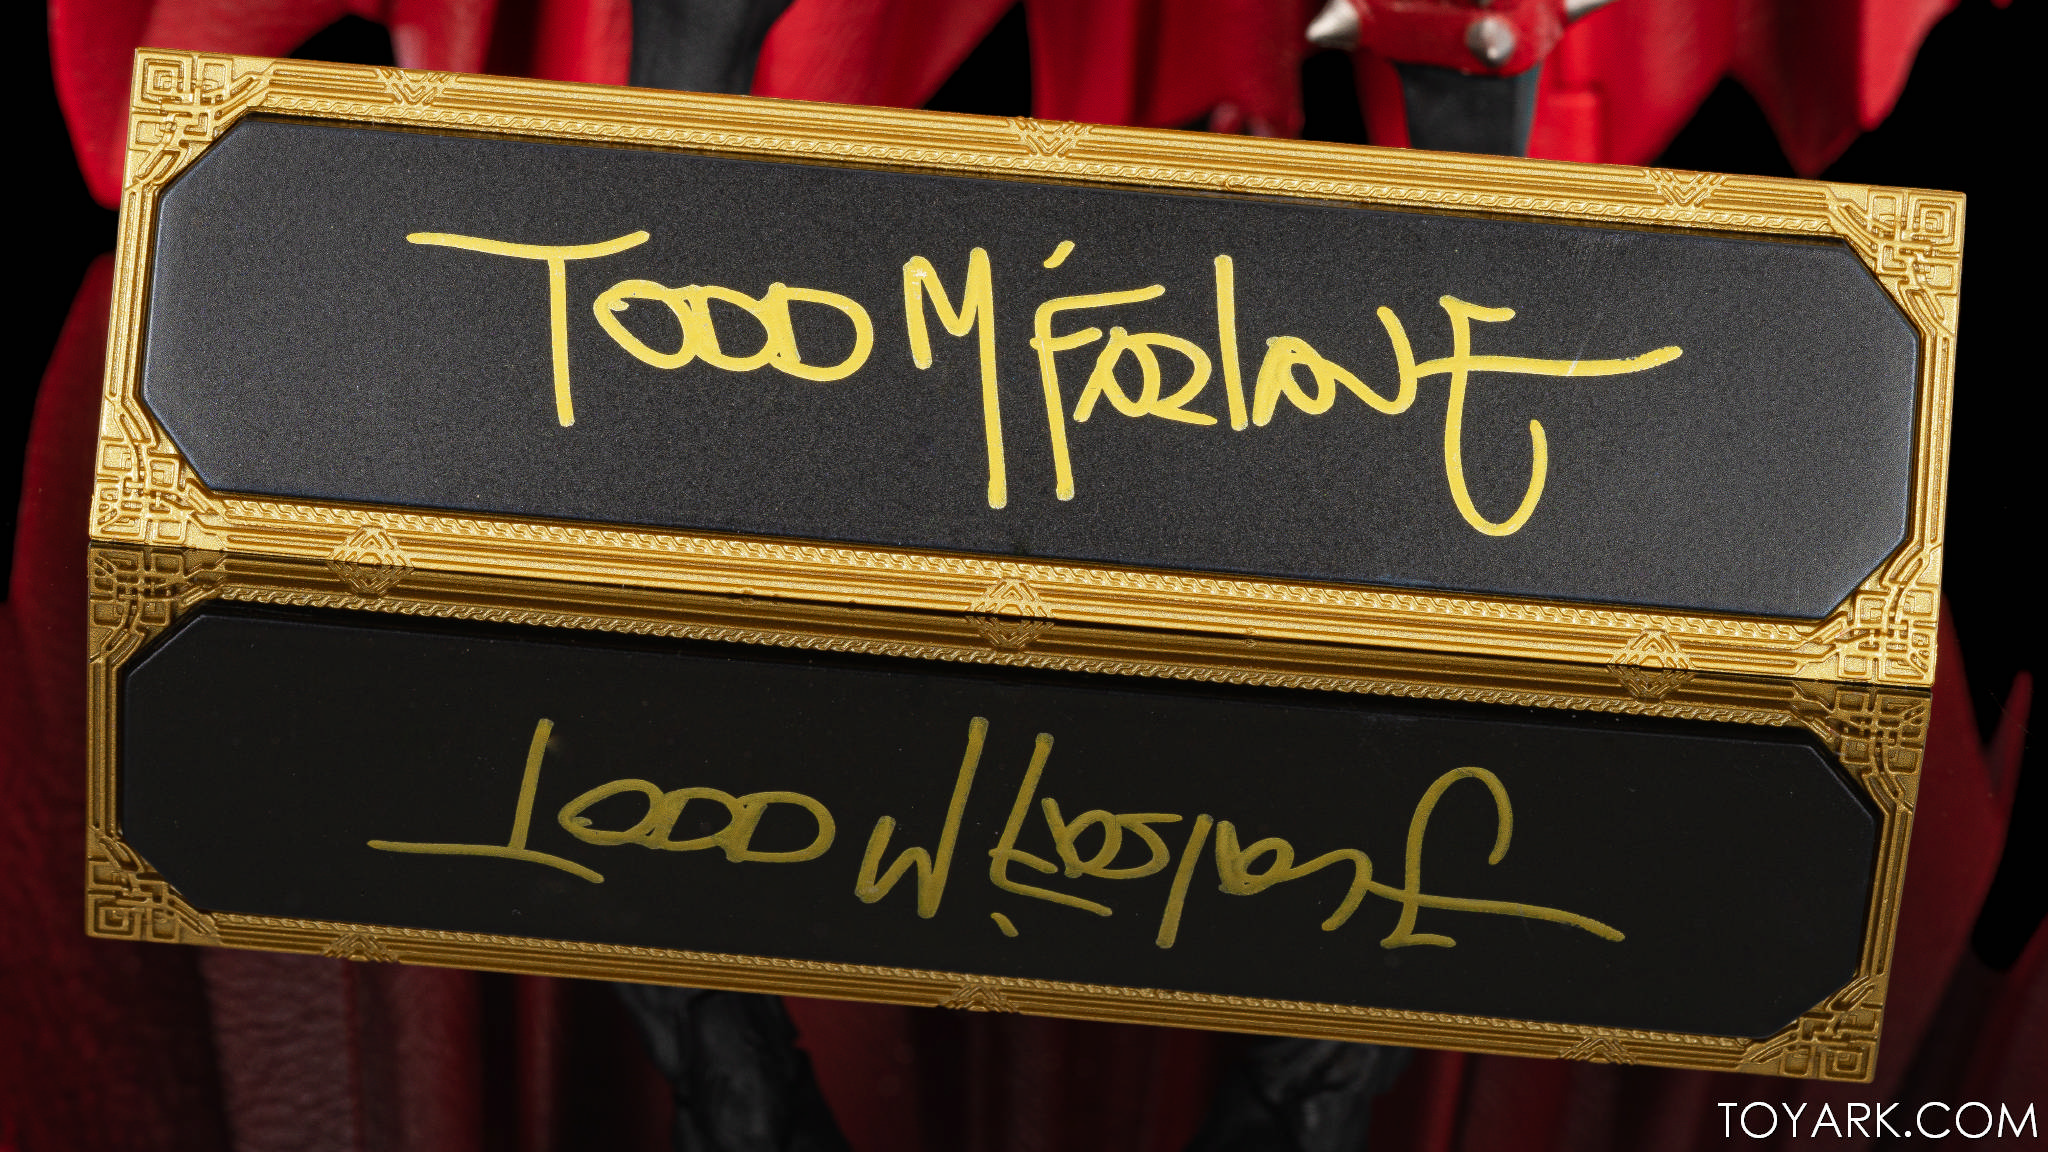 TODD McFARLANE
TOYARK.COM